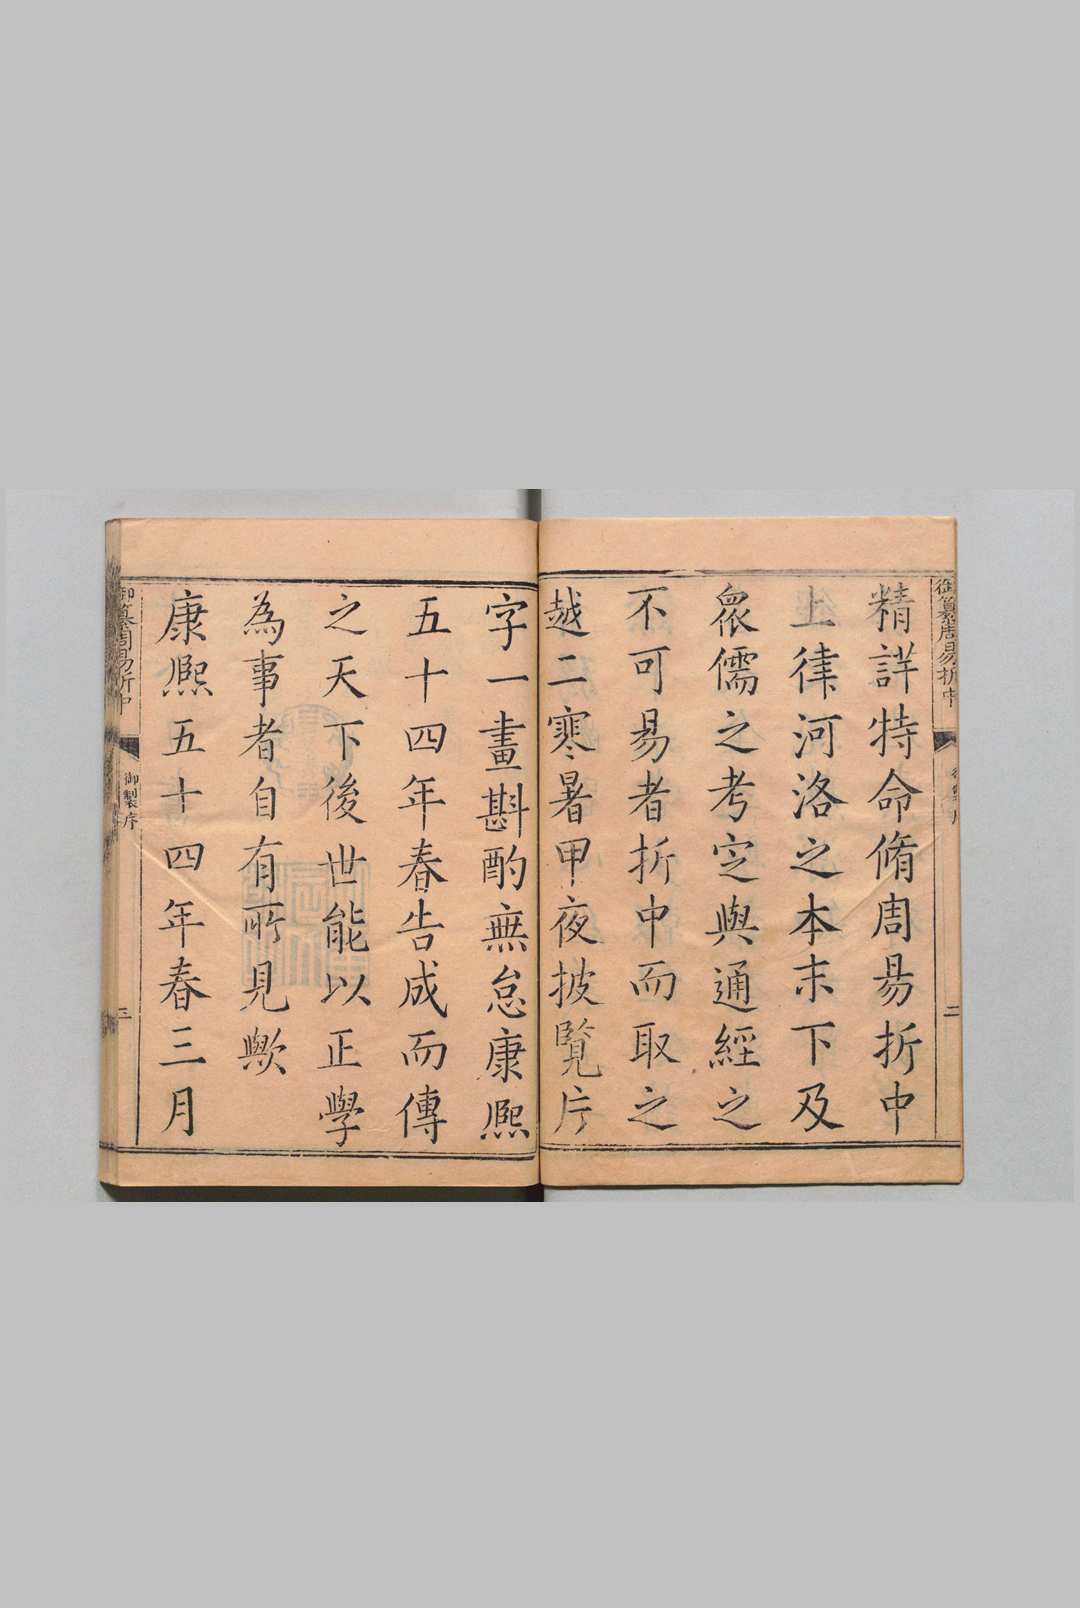 御纂周易折中
精詳特命脩周易折中
上律河洛之本末下及
衆儒之考定與通經之
不可易者折中而取之
越二寒暑甲夜披覽片
字一畫斟酌無怠康熙
五十四年春告成而傳
之天下後世能以正學
為事者自有所見歟
康熙五十四年春三月
御纂周易折中
御製序
三